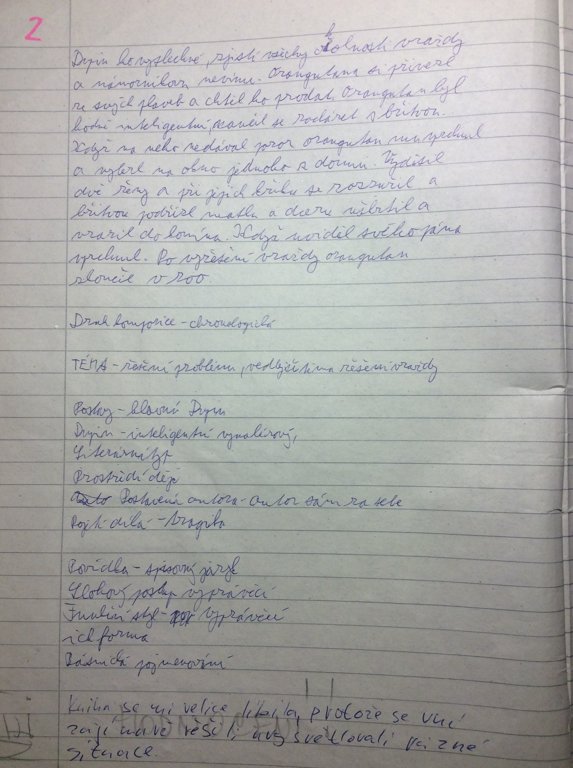 2
Dupin ho vyslechne, zjistí všechny okolnosti vraždy
a námořníkovu nevinu. Orangutana si přivezl
ze svých plaveb a chtěl ho prodat. Orangutan byl
hodně inteligentní naučil se zacházet s břitvou.
Když na něho nedával pozor orangutan mu uprchnul
a vylezl na okno jednoho z domu. Vyděsil
dvě ženy a při jejich křiku se rozzuřil a
břitvou podřízl matku a dceru uškrtil a
vrazil do komína. Když uviděl svého pána
uprchnul. Po vyřešení vraždy orangutan
skončil v zoo
Druh kompozice - chronologická
TÉMA - řešení problému, vedlejší téma řešení vraždy
Postavy - hlavní Dupin
Dupin - inteligentní, vynalézavý,
Literární typ
Prostředí děje
Postavení autora - autor sám za sebe
Pojetí díla - tragika
Povídka - spisovný jazyk
Slohový postup vyprávěcí
Funkční styl - vyprávěcí
ich forma
Básnická pojmenování
Kniha se mi velice líbila, protože se v ní
zajímavě řešili, a vysvětlovali různé
situace.